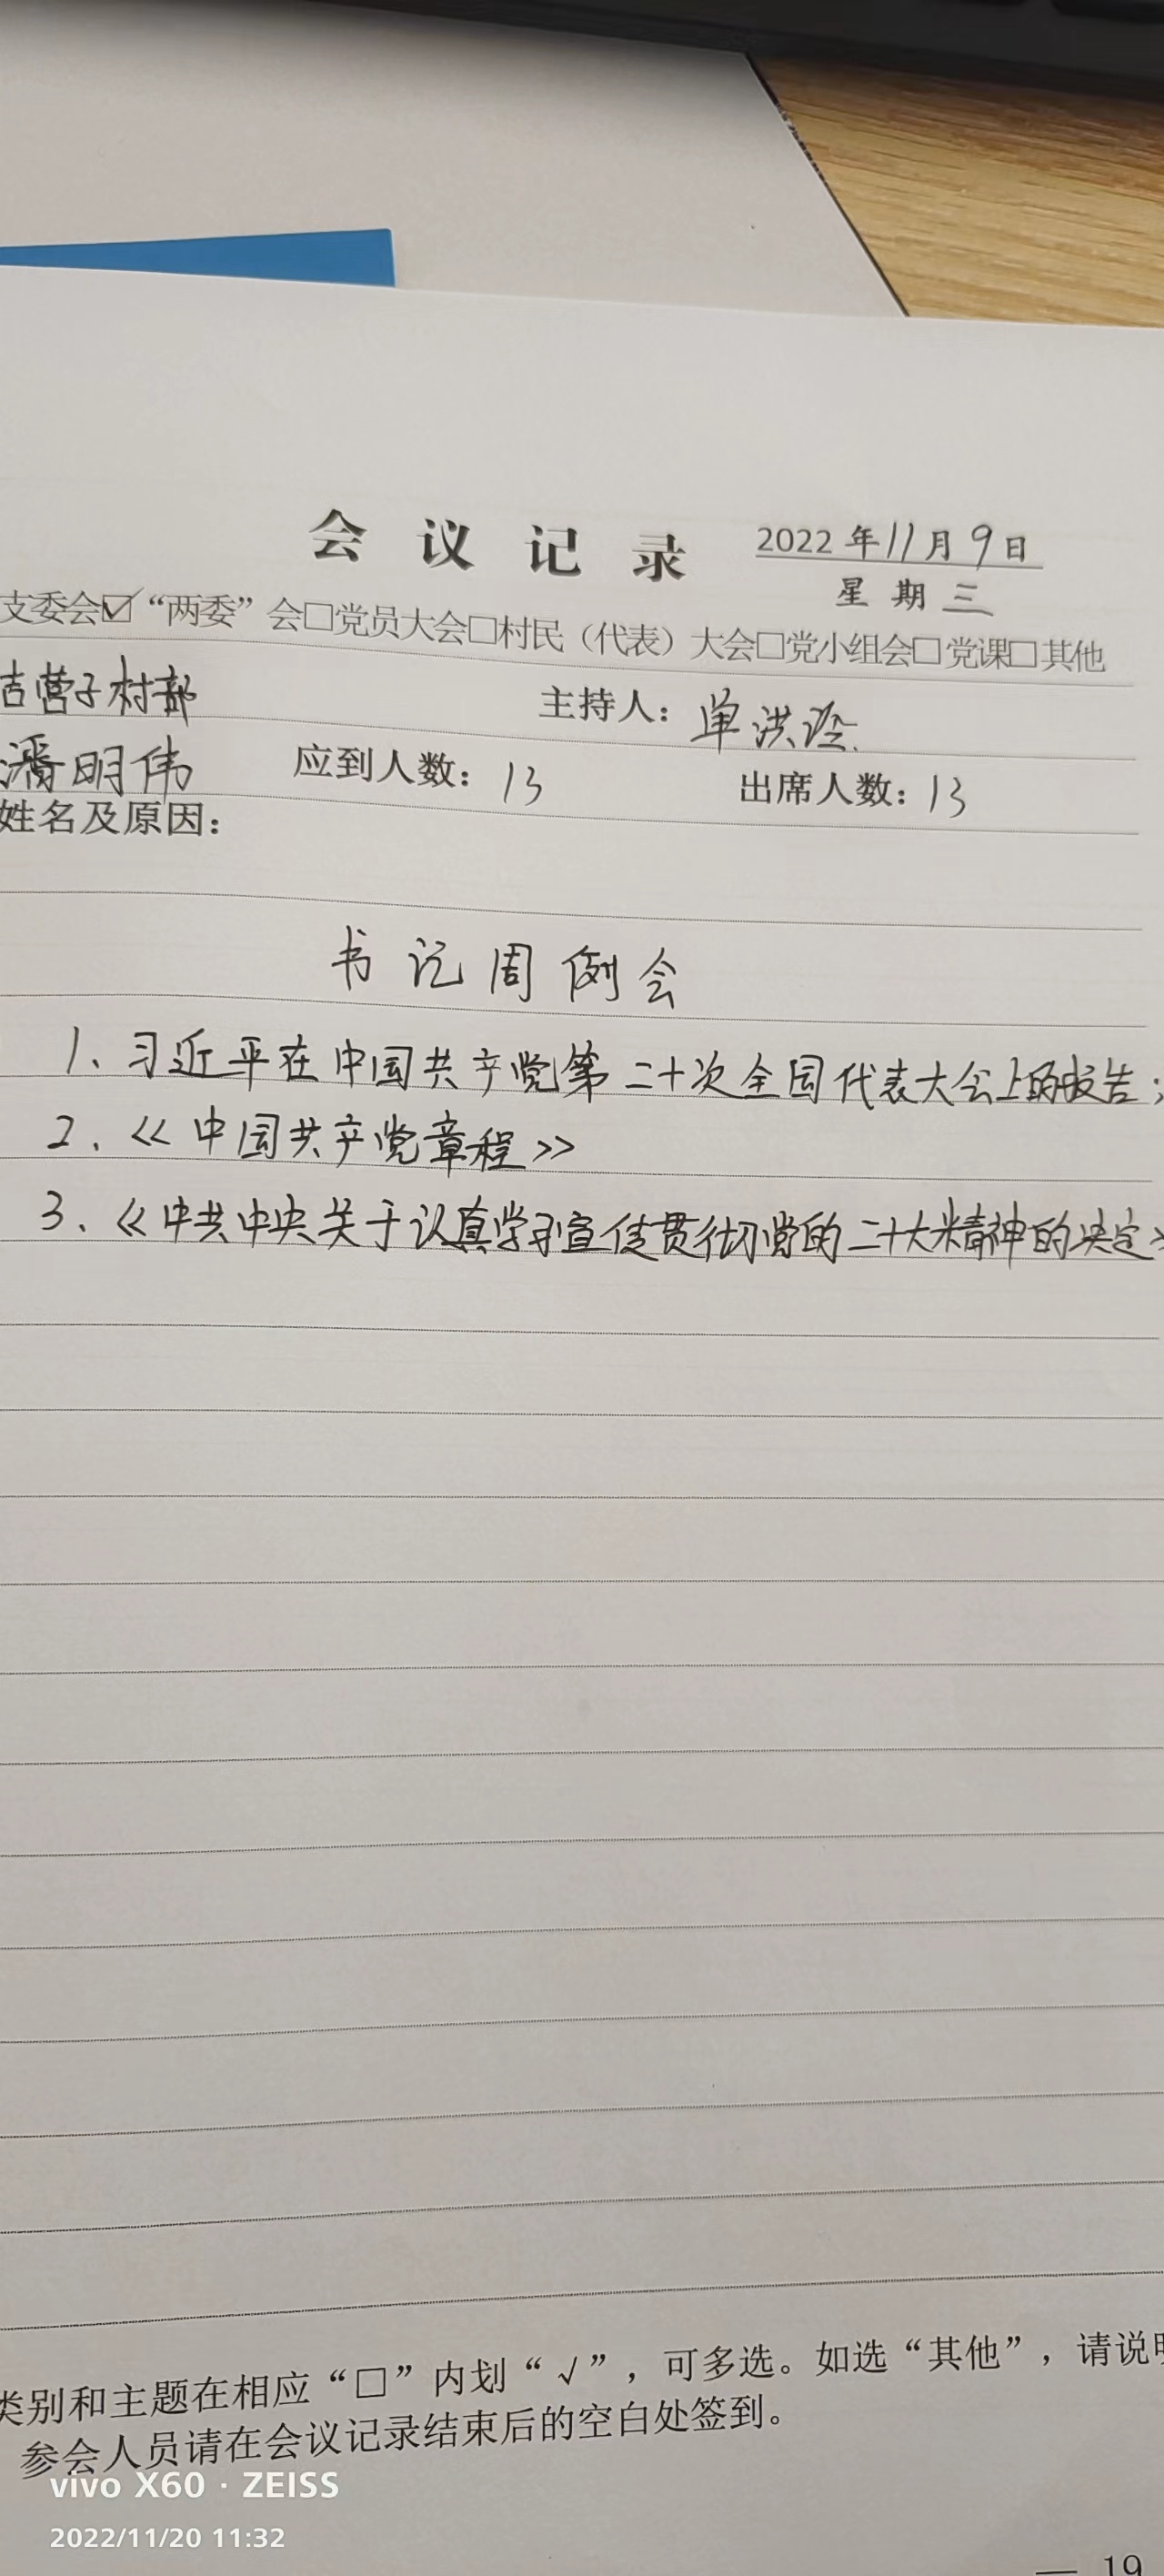 会议记录 2022年11月9日
星期三
支委会☑“两委”会□党员大会□村民（代表）大会□党小组会□党课□其他
吉营子村部 主持人：单洪
潘明伟 应到人数：13 出席人数：13
姓名及原因：
书记周例会
1、习近平在中国共产党第二十次全国代表大会上的报告；
2、《中国共产党章程》
3、《中共中央关于认真学习宣传贯彻党的二十大精神的决定》
类别和主题在相应“□”内划“√”，可多选。如选“其他”，请说明
参会人员请在会议记录结束后的空白处签到。
vivo X60 · ZEISS
2022/11/20 11:32
— 19